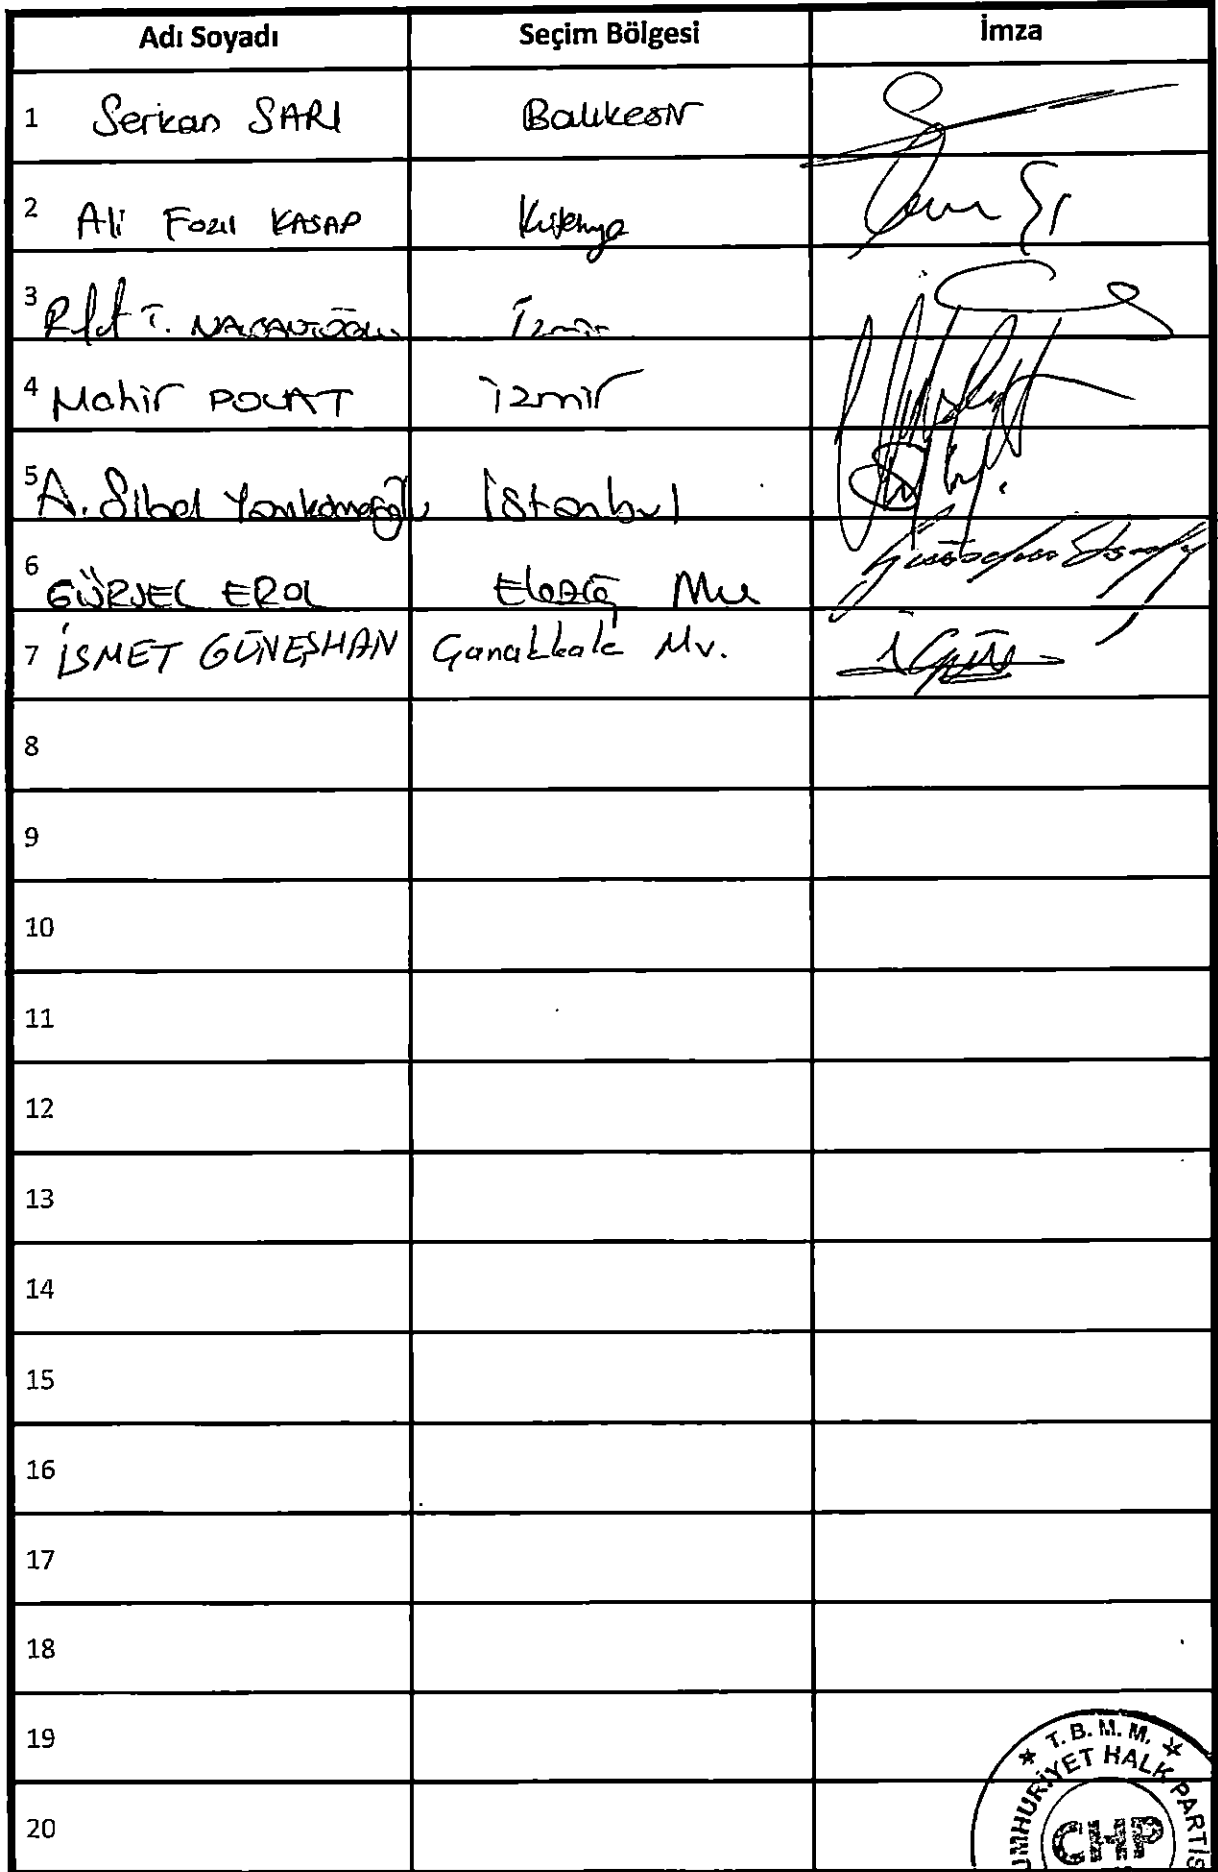 Adı Soyadı Seçim Bölgesi İmza
1 Serkan SARI Balıkesir
2 Ali Fazıl KASAP Kütahya
3 Rıfat T. NALBANTOĞLU İzmir
4 Mahir POLAT İzmir
5 A. Sibel Yanıkömeroğlu İstanbul
6 GÜRSEL EROL Elazığ Mv
7 İSMET GÜNEŞHAN Çanakkale Mv.
8
9
10
11
12
13
14
15
16
17
18
19
20
★ T.B.M.M. ★
UMHURİYET HALK PARTİS
CHP